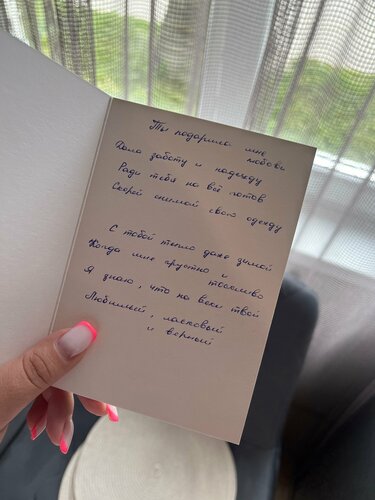 Ты подарила мне
любовь
Дала заботу и надежду
Ради тебя на всё готов
Скорей снимай свою одежду
С тобой тепло даже зимой
Когда мне грустно и тоскливо
Я знаю, что на веки твой
Любимый, ласковый
и верный